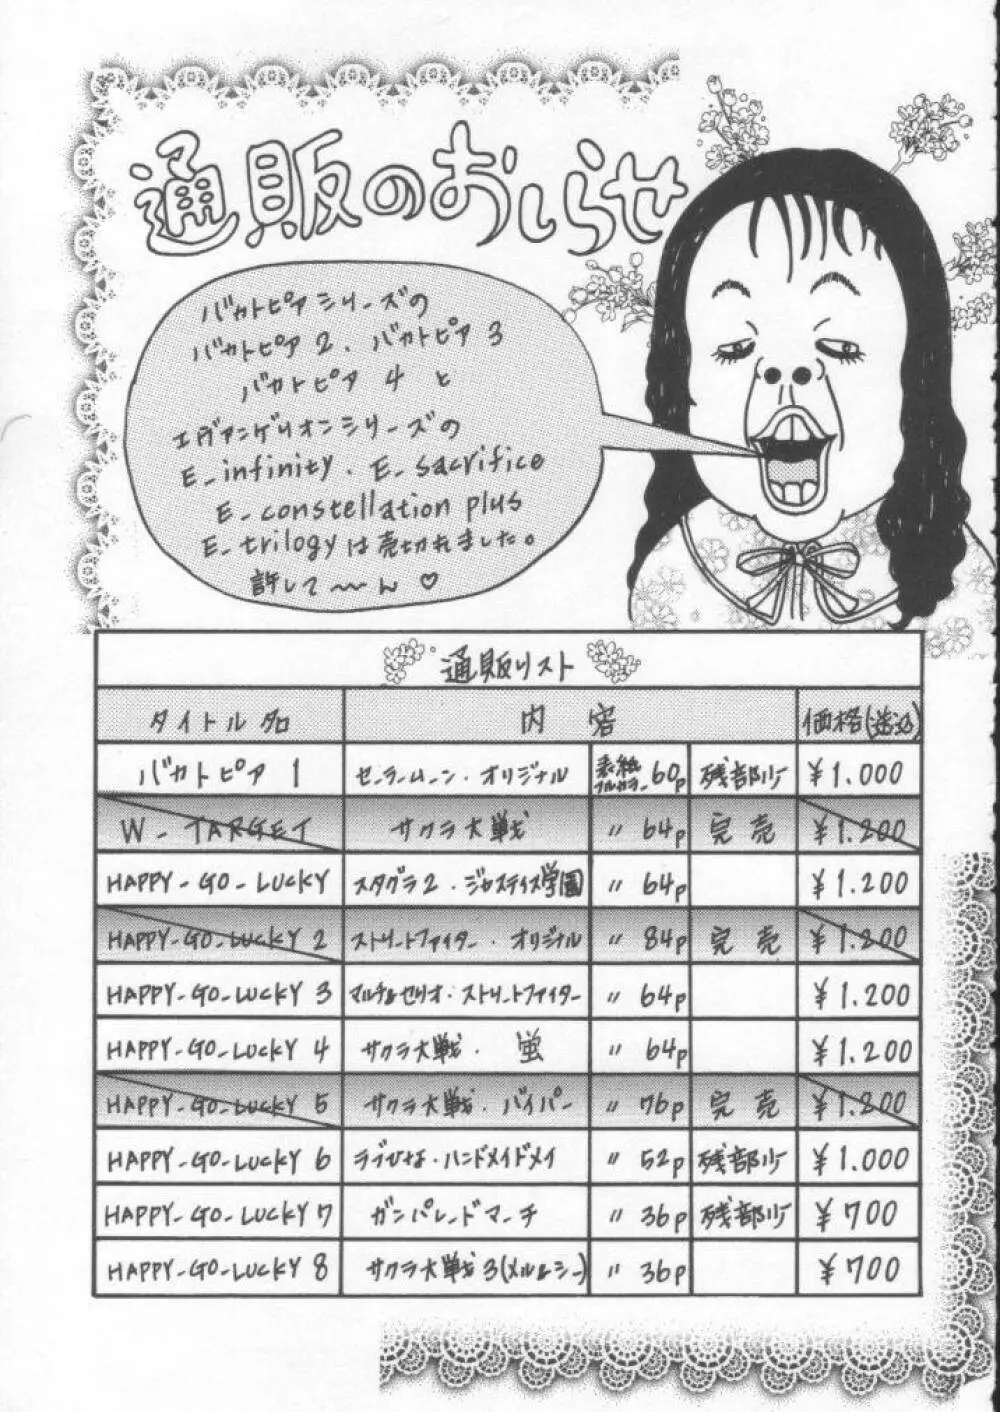 通販のおしらせ
バカトピアシリーズの
バカトピア 2、バカトピア 3
バカトピア 4 と
エヴァンゲリオンシリーズの
E_infinity. E_sacrifice
E_constellation plus
E_trilogyは売切れました。
許して〜ん♡
通販リスト
タイトル名 内容 価格(送込)
バカトピア 1 セーラームーン・オリジナル 表紙フルカラー 60p 残部少 ¥1.000
W-TARGET サクラ大戦 〃 64p 完売 ¥1.200
HAPPY-GO-LUCKY スタグラ2・ジャスティス学園 〃 64p ¥1.200
HAPPY-GO-LUCKY 2 ストリートファイター・オリジナル 〃 84p 完売 ¥1.200
HAPPY-GO-LUCKY 3 マルチ&セリオ・ストリートファイター 〃 64p ¥1.200
HAPPY-GO-LUCKY 4 サクラ大戦・蛍 〃 64p ¥1.200
HAPPY-GO-LUCKY 5 サクラ大戦・バイパー 〃 76p 完売 ¥1.200
HAPPY-GO-LUCKY 6 ラブひな・ハンドメイドメイ 〃 52p 残部少 ¥1.000
HAPPY-GO-LUCKY 7 ガンパレードマーチ 〃 36p 残部少 ¥700
HAPPY-GO-LUCKY 8 サクラ大戦3(メル&シー) 〃 36p ¥700